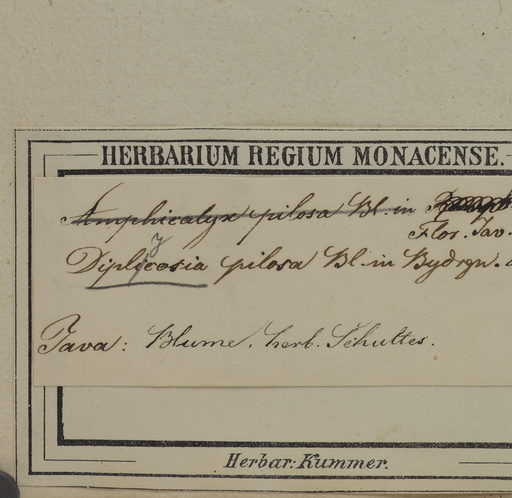 HERBARIUM REGIUM MONACENSE.
Amphicalyx pilosa Bl. in
Flor. Jav.
Diplicosia pilosa Bl. in Bydrgn.
Java: Blume. herb. Schultes.
Herbar: Kummer.